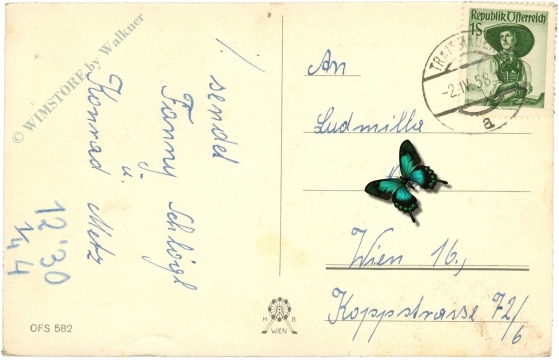 © WIMSTORE by Walkner
! sendet
Fanny Schlögl
u.
Konrad Metz
12'30
1/4 4
OFS 582
H B
WIEN
Republik Österreich
1S
-2.IV.58
a
An
Ludmilla
Wien 16.,
Koppstrasse 72/6